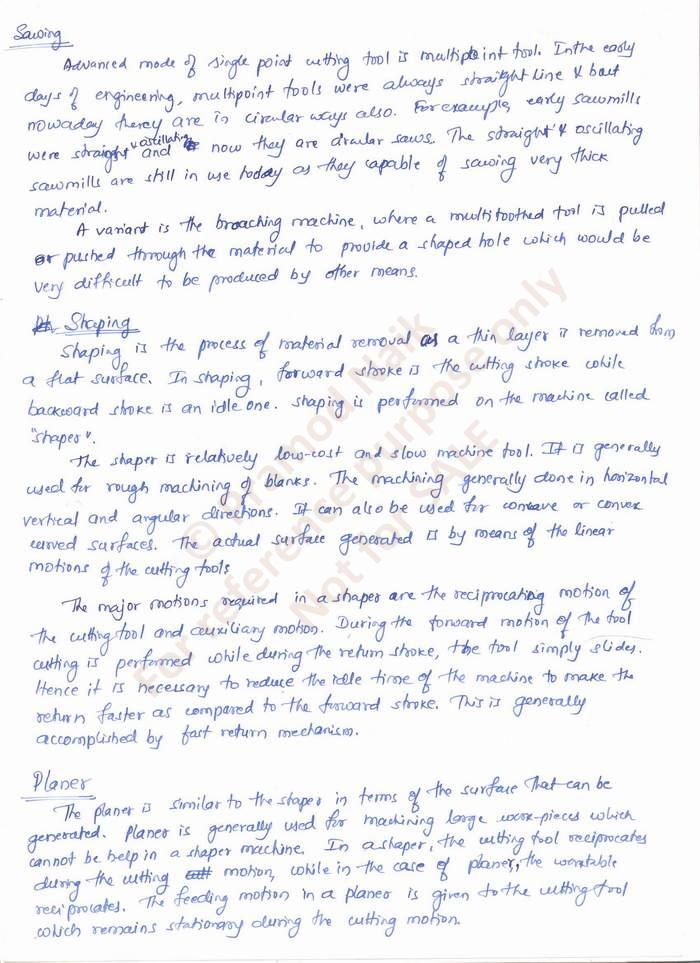 Sawing
Advanced mode of single point cutting tool is multipoint tool. In the early
days of engineering, multipoint tools were always straight line & but
nowaday therey are in circular ways also. For example, early sawmills
were straight & oscillating and now they are circular saws. The straight & oscillating
sawmills are still in use today as they capable of sawing very thick
material.
A variant is the broaching machine, where a multitoothed tool is pulled
or pushed through the material to provide a shaped hole which would be
very difficult to be produced by other means.
Shaping
Shaping is the process of material removal as a thin layer is removed from
a flat surface. In shaping, forward stroke is the cutting stroke while
backward stroke is an idle one. shaping is performed on the machine called
"shaper".
The shaper is relatively low-cost and slow machine tool. It is generally
used for rough machining of blanks. The machining generally done in horizontal
vertical and angular directions. It can also be used for concave or convex
curved surfaces. The actual surface generated is by means of the linear
motions of the cutting tools
The major motions required in a shaper are the reciprocating motion of
the cutting tool and auxiliary motion. During the forward motion of the tool
cutting is performed while during the return stroke, the tool simply slides.
Hence it is necessary to reduce the idle time of the machine to make the
return faster as compared to the forward stroke. This is generally
accomplished by fast return mechanism.
Planer
The planer is similar to the shaper in terms of the surface that can be
generated. Planer is generally used for machining large work-pieces which
cannot be help in a shaper machine. In a shaper, the cutting tool reciprocates
during the cutting motion, while in the case of planer, the worktable
reciprocates. The feeding motion in a planer is given to the cutting tool
which remains stationary during the cutting motion.
© Pramod Naik
For reference purpose only
Not for SALE